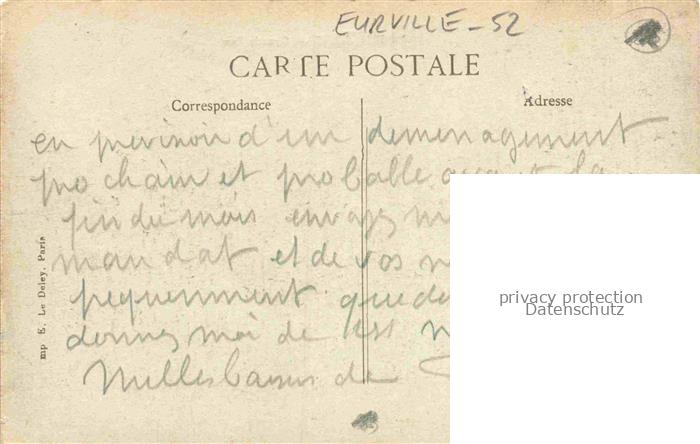 EURVILLE - 52
CARTE POSTALE
Correspondance
Adresse
en previsoin d'un demenagement
prochain et probable avant la
fin du mois envoyez m
mandat et de vos n
frequenment que de
donnez moi de
Milles baisers de
mp E. Le Deley, Paris
privacy protection
Datenschutz